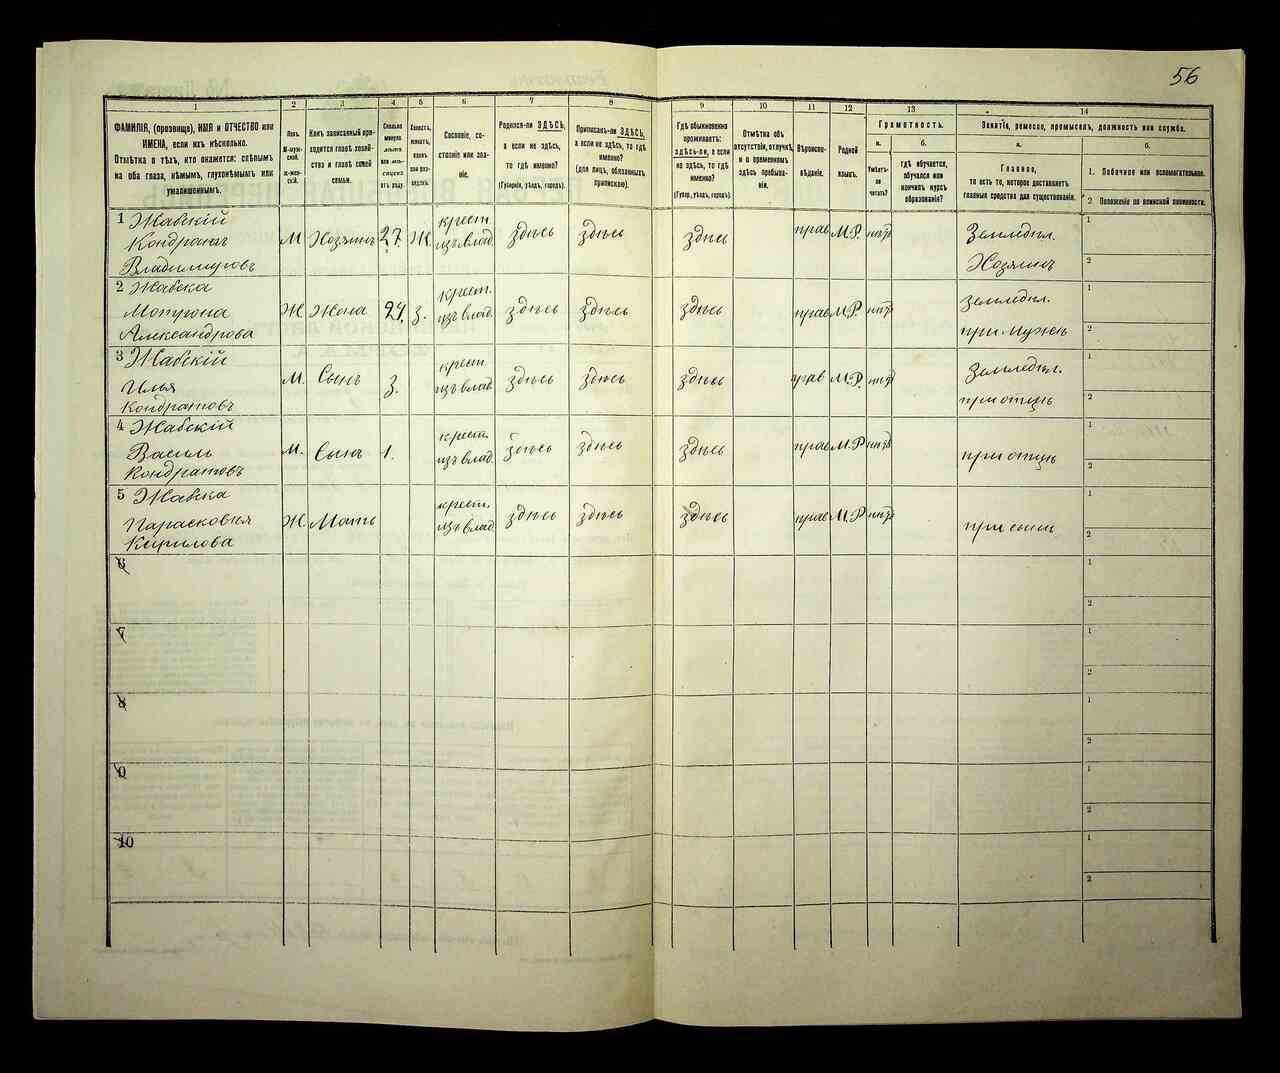 56
1
2
3
4
5
6
7
8
9
10
11
12
13
14
ФАМИЛІЯ, (прозвище), ИМЯ и ОТЧЕСТВО или
ИМЕНА, если ихъ нѣсколько.
Отмѣтка о тѣхъ, кто окажется: слѣпымъ
на оба глаза, нѣмымъ, глухонѣмымъ или
умалишеннымъ.
Полъ.
М-муж-
ской.
Ж-жен-
скій.
Какъ записанный при-
ходится главѣ хозяй-
ства и главѣ своей
семьи.
Сколько
минуло
лѣтъ
или мѣ-
сяцевъ
отъ роду.
Холостъ,
женатъ,
вдовъ
или раз-
веденъ.
Сословіе, со-
стояніе или зва-
ніе.
Родился-ли ЗДѢСЬ,
а если не здѣсь,
то гдѣ именно?
(Губернія, уѣздъ, городъ).
Приписанъ-ли ЗДѢСЬ,
а если не здѣсь, то гдѣ
именно?
(для лицъ, обязанныхъ
припискою).
Гдѣ обыкновенно
проживаетъ:
здѣсь-ли, а если
не здѣсь, то гдѣ
именно?
(Губер., уѣздъ, городъ).
Отмѣтка объ
отсутствіи, отлучкѣ
и о временномъ
здѣсь пребыва-
ніи.
Вѣроиспо-
вѣданіе.
Родной
языкъ.
Грамотность.
а.
б.
Умѣетъ-
ли
читать?
гдѣ обучается,
обучался или
кончилъ курсъ
образованія?
Занятіе, ремесло, промыселъ, должность или служба.
а.
б.
Главное,
то есть то, которое доставляетъ
главныя средства для существованія.
1. Побочное или вспомогательное.
2. Положеніе по воинской повинности.
1 Жабскій
Кондратъ
Владимировъ
М. Хозяинъ 27. Ж. крест. изъ влад. здѣсь здѣсь здѣсь прав. М.Р. нѣтъ
Земледѣл.
Хозяинъ
1
2
2 Жабска
Александрова
Ж. Жена 24. З. крест. изъ влад. здѣсь здѣсь здѣсь прав. М.Р. нѣтъ
земледѣл.
при мужѣ
1
2
3 Жабскій
Илья
Кондратовъ
М. Сынъ 3. крест. изъ влад. здѣсь здѣсь здѣсь прав. М.Р. нѣтъ
Земледѣл.
при отцѣ
1
2
4 Жабскій
Василь
Кондратовъ
М. Сынъ 1. крест. изъ влад. здѣсь здѣсь здѣсь прав. М.Р. нѣтъ
при отцѣ
1
2
5 Жабска
Парасковія
Кирилова
Ж. Мать крест. изъ влад. здѣсь здѣсь здѣсь прав. М.Р. нѣтъ
при сынѣ
1
2
6
1
2
7
1
2
8
1
2
9
1
2
10
1
2